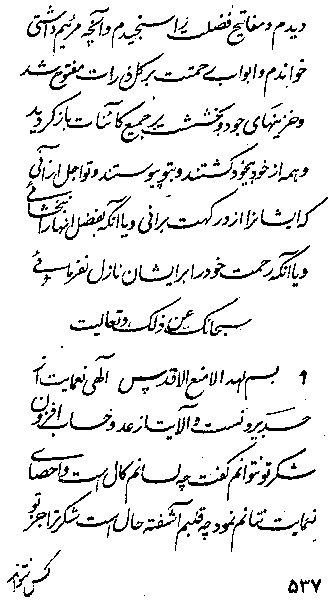 دیدم و مفاتیح فضلت را سنجیدم و آنچه مرئیم داشتی
خواندم و ابواب رحمتت بر کل ذرات مفتوح شد
و خزینهای جود و بخششت بر جمیع کائنات باز کردید
و همه از خود بیخود کشتند و بتو پیوستند و تو اجل از آنی
که ایشانرا از در کهت برانی و یا آنکه بفضل انهار بخشائی
و یا آنکه رحمت خود را بر ایشان نازل نفرمائی
سبحانک عن ذلک و تعالیت
۹ بسم الله الامنع الاقدس الهی نعمایت از
حد بیرونست و آلایت از عد و حساب افزون
شکر تو نتوانم کفت چه لسانم کال است و احصای
نعمایت نتانم نمود چه قلبم آشفته حال است شکر ترا جز تو
کس نتواند
۵۳۷